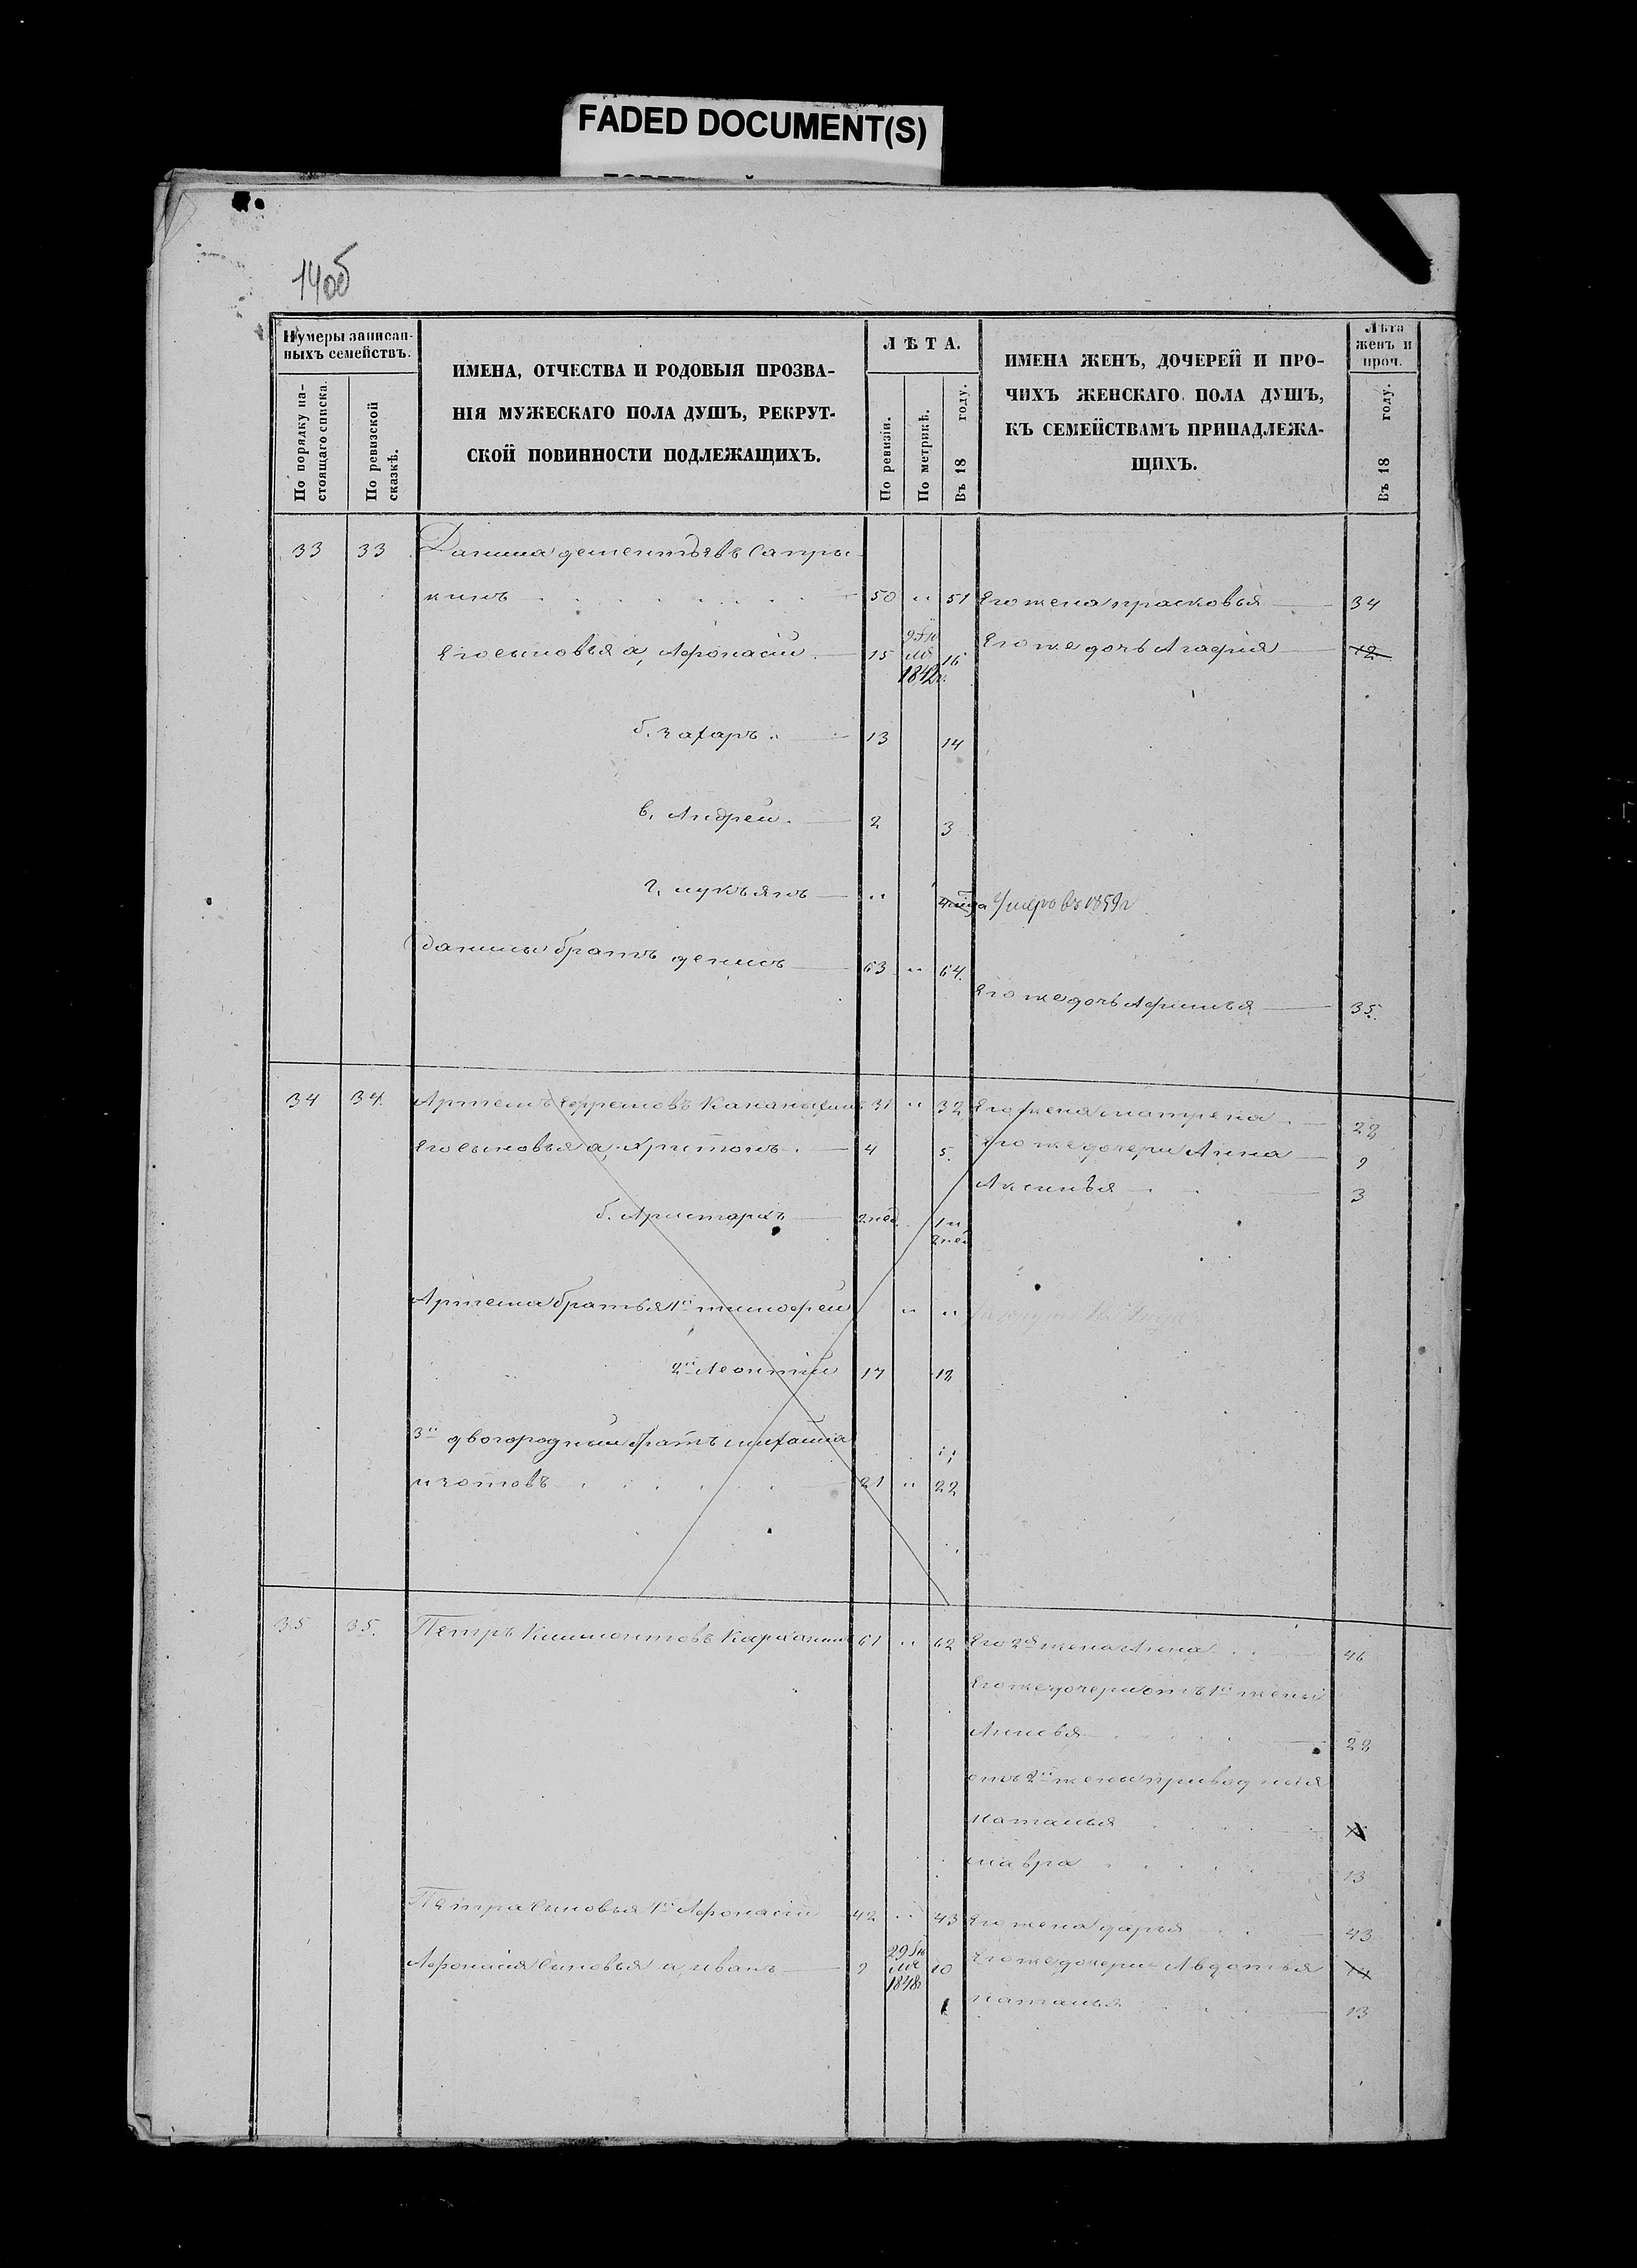 FADED DOCUMENT(S)
14об
Нумеры записан-
ныхъ семействъ.
По порядку на-
стоящаго списка.
По ревизской
сказкѣ.
ИМЕНА, ОТЧЕСТВА И РОДОВЫЯ ПРОЗВА-
НІЯ МУЖЕСКАГО ПОЛА ДУШЪ, РЕКРУТ-
СКОЙ ПОВИННОСТИ ПОДЛЕЖАЩИХЪ.
ЛѢТА.
По ревизіи.
По метрикѣ.
Въ 18 году.
ИМЕНА ЖЕНЪ, ДОЧЕРЕЙ И ПРО-
ЧИХЪ ЖЕНСКАГО ПОЛА ДУШЪ,
КЪ СЕМЕЙСТВАМЪ ПРИНАДЛЕЖА-
ЩИХЪ.
Лѣта
женъ и
проч.
Въ 18 году.
33 33 Данила дементьявъ Сапры-
кинъ 50 " 51 Его жена прасковья 34
Его сыновья а, Афонасій 15 1842г. 16 Его же дочь Агафія 12
б. захаръ 13 14
в, Андрей 2 3
г, лукъянъ " умеръ въ 1859г
Данилы братъ денисъ 63 " 64.
Его же дочь Афимья 35.
34 34. Артемъ Ефремовъ 31 " 32 Его жена матрена 28
Его сыновья а, Аритонъ 4 5. Его же дочери Анна 9
Аксинья 3
б. Аристархъ 2 нед. 1 и
2 нед
Артема братья 1й тимофей " "
2й Леонтій 17 18
3й двоюродный братъ михайла
изотовъ 21 " 22
35 35. Петръ Климонтовъ 61 " 62 Его 2я жена Анна 46
Его же дочери отъ 1й жены
28
отъ 2й жены приводныя
наталья
мавра 13
Петра сыновья 1й Афонасій 42 " 43 Его жена дарья 43
Афонасія сыновья а, иванъ 9 29 1848г 10 Его же дочери Авдотья 14
наталья 13